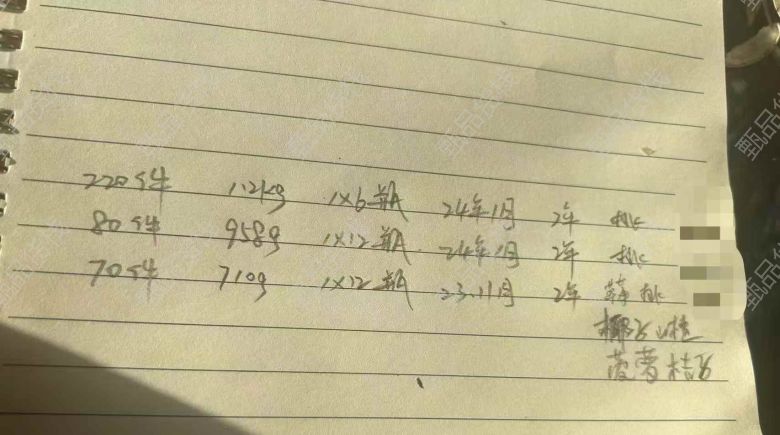 220件 1.2kg 1×6瓶 24年1月 2年 桃
80件 958g 1×12瓶 24年1月 2年 桃
70件 710g 1×12瓶 23.11月 2年 桃
菠萝桔
甄品优栈